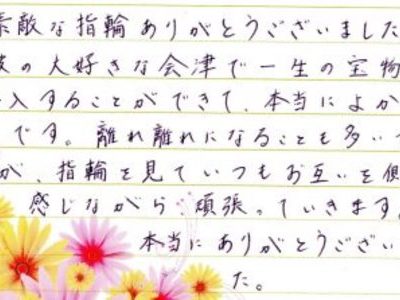 素敵な指輪ありがとうございました
彼の大好きな会津で一生の宝物
入することができて、本当によか
です。離れ離れになることも多い
が、指輪を見ていつもお互いを側
感じながら頑張っていきます。
本当にありがとうござい
た。